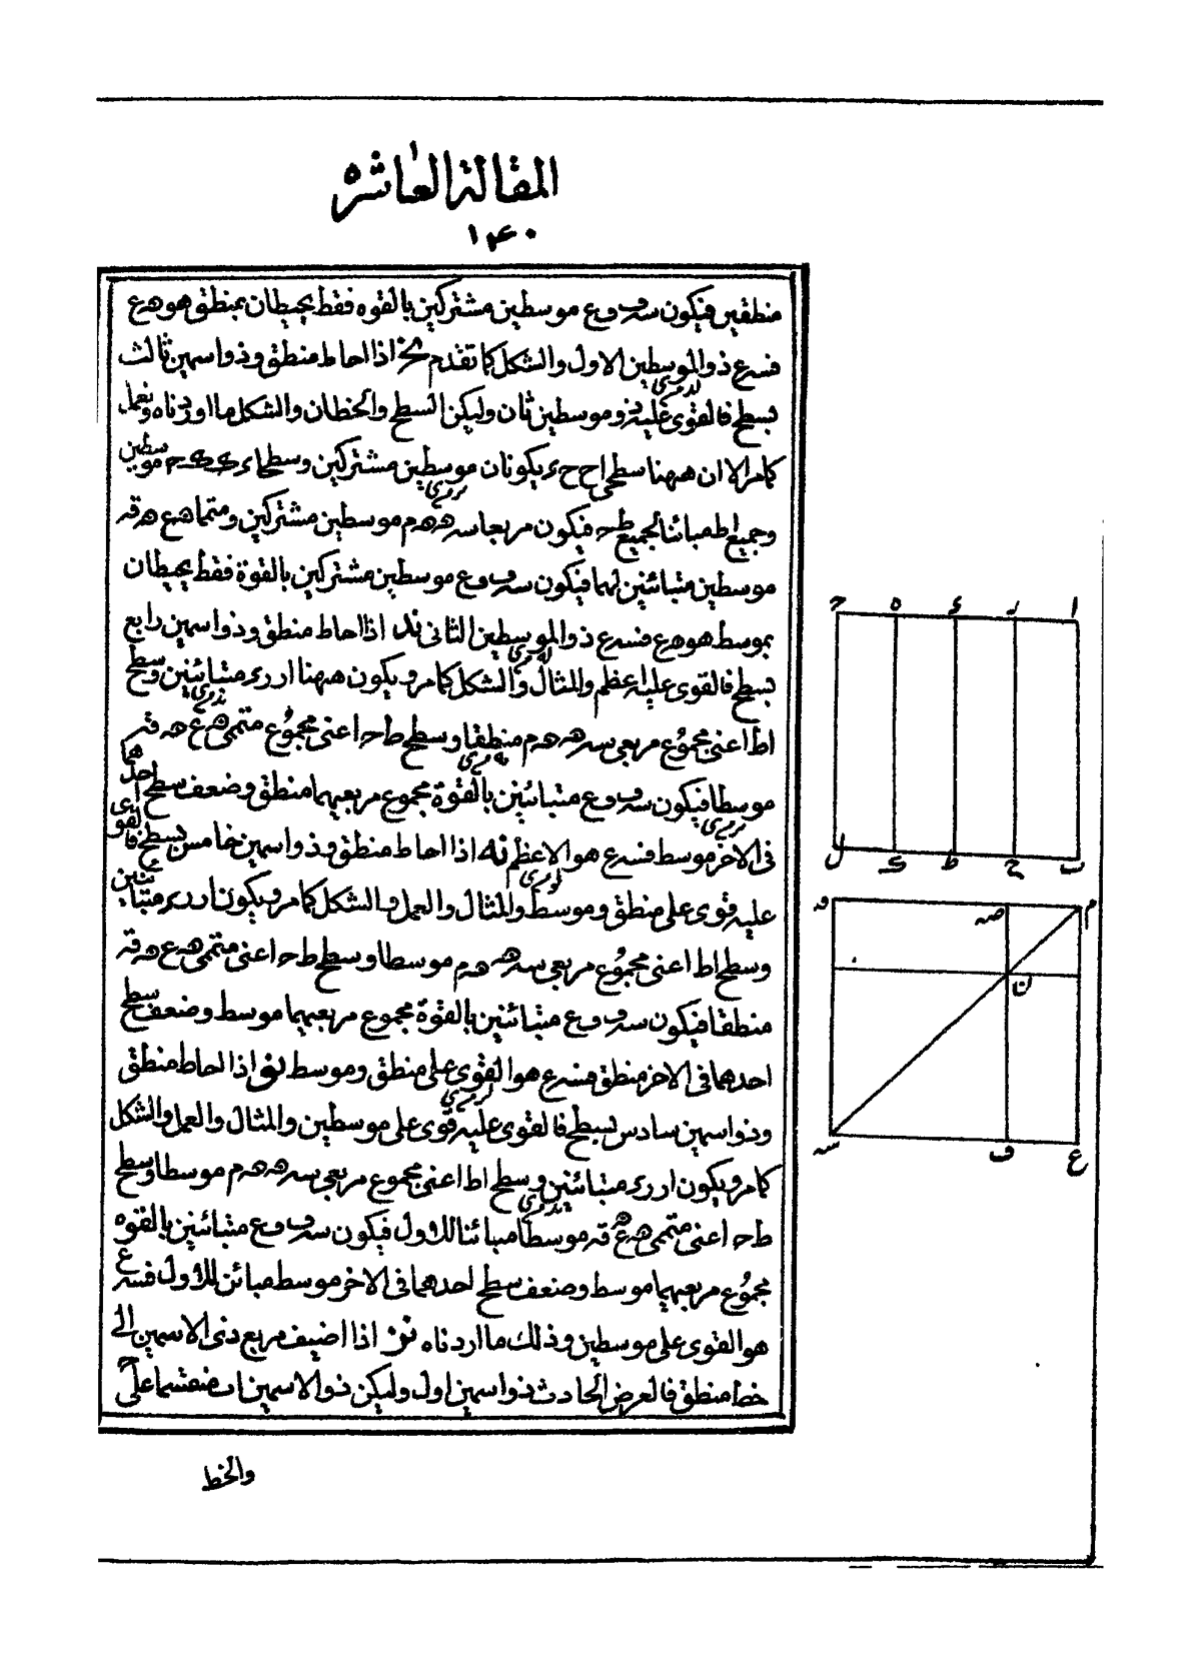 المقالة العاشره
١٤٠
منطقين فيكون سه ف و ع موسطين مشتركين بالقوه فقط يحيطان بمنطق هو هـ ع
فسه ع ذو الموسطين الاول والشكل كما تقدم نج اذا احاط منطق وذو اسمين ثالث
بسطح فالقوى عليه ذو موسطين ثان وليكن السطح والخطان والشكل ما اوردناه ونعمل
كما مر الا ان ههنا سطحى اح ح ء يكونان موسطين مشتركين وسطحا ء ك ك ح موسطين
وجميع اط مباينا لجميع ط ح فيكون مربعا سه هـ هـ م موسطين مشتركين ومتمما هـ ع هـ قه
موسطين متبائنين لهما فيكون سه ف و ع موسطين مشتركين بالقوة فقط يحيطان
بموسط هو هـ ع فسه ع ذو الموسطين الثانى ند اذا احاط منطق وذو اسمين رابع
بسطح فالقوى عليه اعظم والمثال والشكل كما مر ويكون ههنا ا ر ر ء متبائنين وسطح
اط اعنى مجموع مربعى سه هـ هـ م منطقا وسطح ط ح اعنى مجموع متممى هـ ع هـ قه
موسطا فيكون سه ف و ع متبائنين بالقوة مجموع مربعيهما منطق وضعف سطح احدهما
فى الاخر موسط فسه ع هو الاعظم نه اذا احاط منطق وذو اسمين خامس بسطح فالقوى
عليه قوى على منطق وموسط والمثال والعمل والشكل كما مر ويكون ا ر ر ء متباينين
وسطح اط اعنى مجموع مربعى سه هـ هـ م موسطا وسطح ط ح اعنى متممى هـ ع هـ قه
منطقا فيكون سه ف و ع متبائنين بالقوة مجموع مربعيهما موسط وضعف سطح
احدهما فى الاخر منطق فسه ع هو القوى على منطق وموسط نو اذا احاط منطق
وذو اسمين سادس بسطح فالقوى عليه قوى على موسطين والمثال والعمل والشكل
كما مر ويكون ا ر ر ء متبائنين وسطح اط اعنى مجموع مربعى سه هـ هـ م موسطا وسطح
ط ح اعنى متممى هـ ع هـ قه موسطا مبائنا للاول فيكون سه ف و ع متبائنين بالقوه
مجموع مربعيهما موسط وضعف سطح احدهما فى الاخر موسط مبائن للاول فسه ع
هو القوى على موسطين وذلك ما اردناه نز اذا اضيف مربع ذى الاسمين الى
خط منطق فالعرض الحادث ذو اسمين اول وليكن ذو الاسمين ا ب منقسما على ح
والخط
ا ر ء ه ح
ب ح ط ك ل
م صه قه
ن
ع ف سه